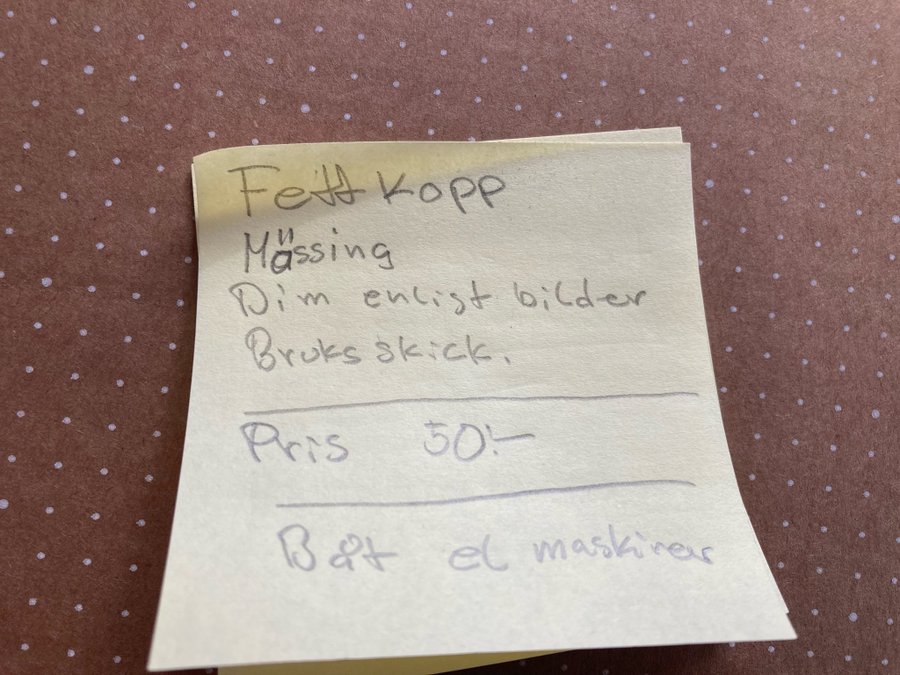 Fettkopp
Mässing
Dim enligt bilder
Bruksskick.
Pris 50:-
Båt el maskiner